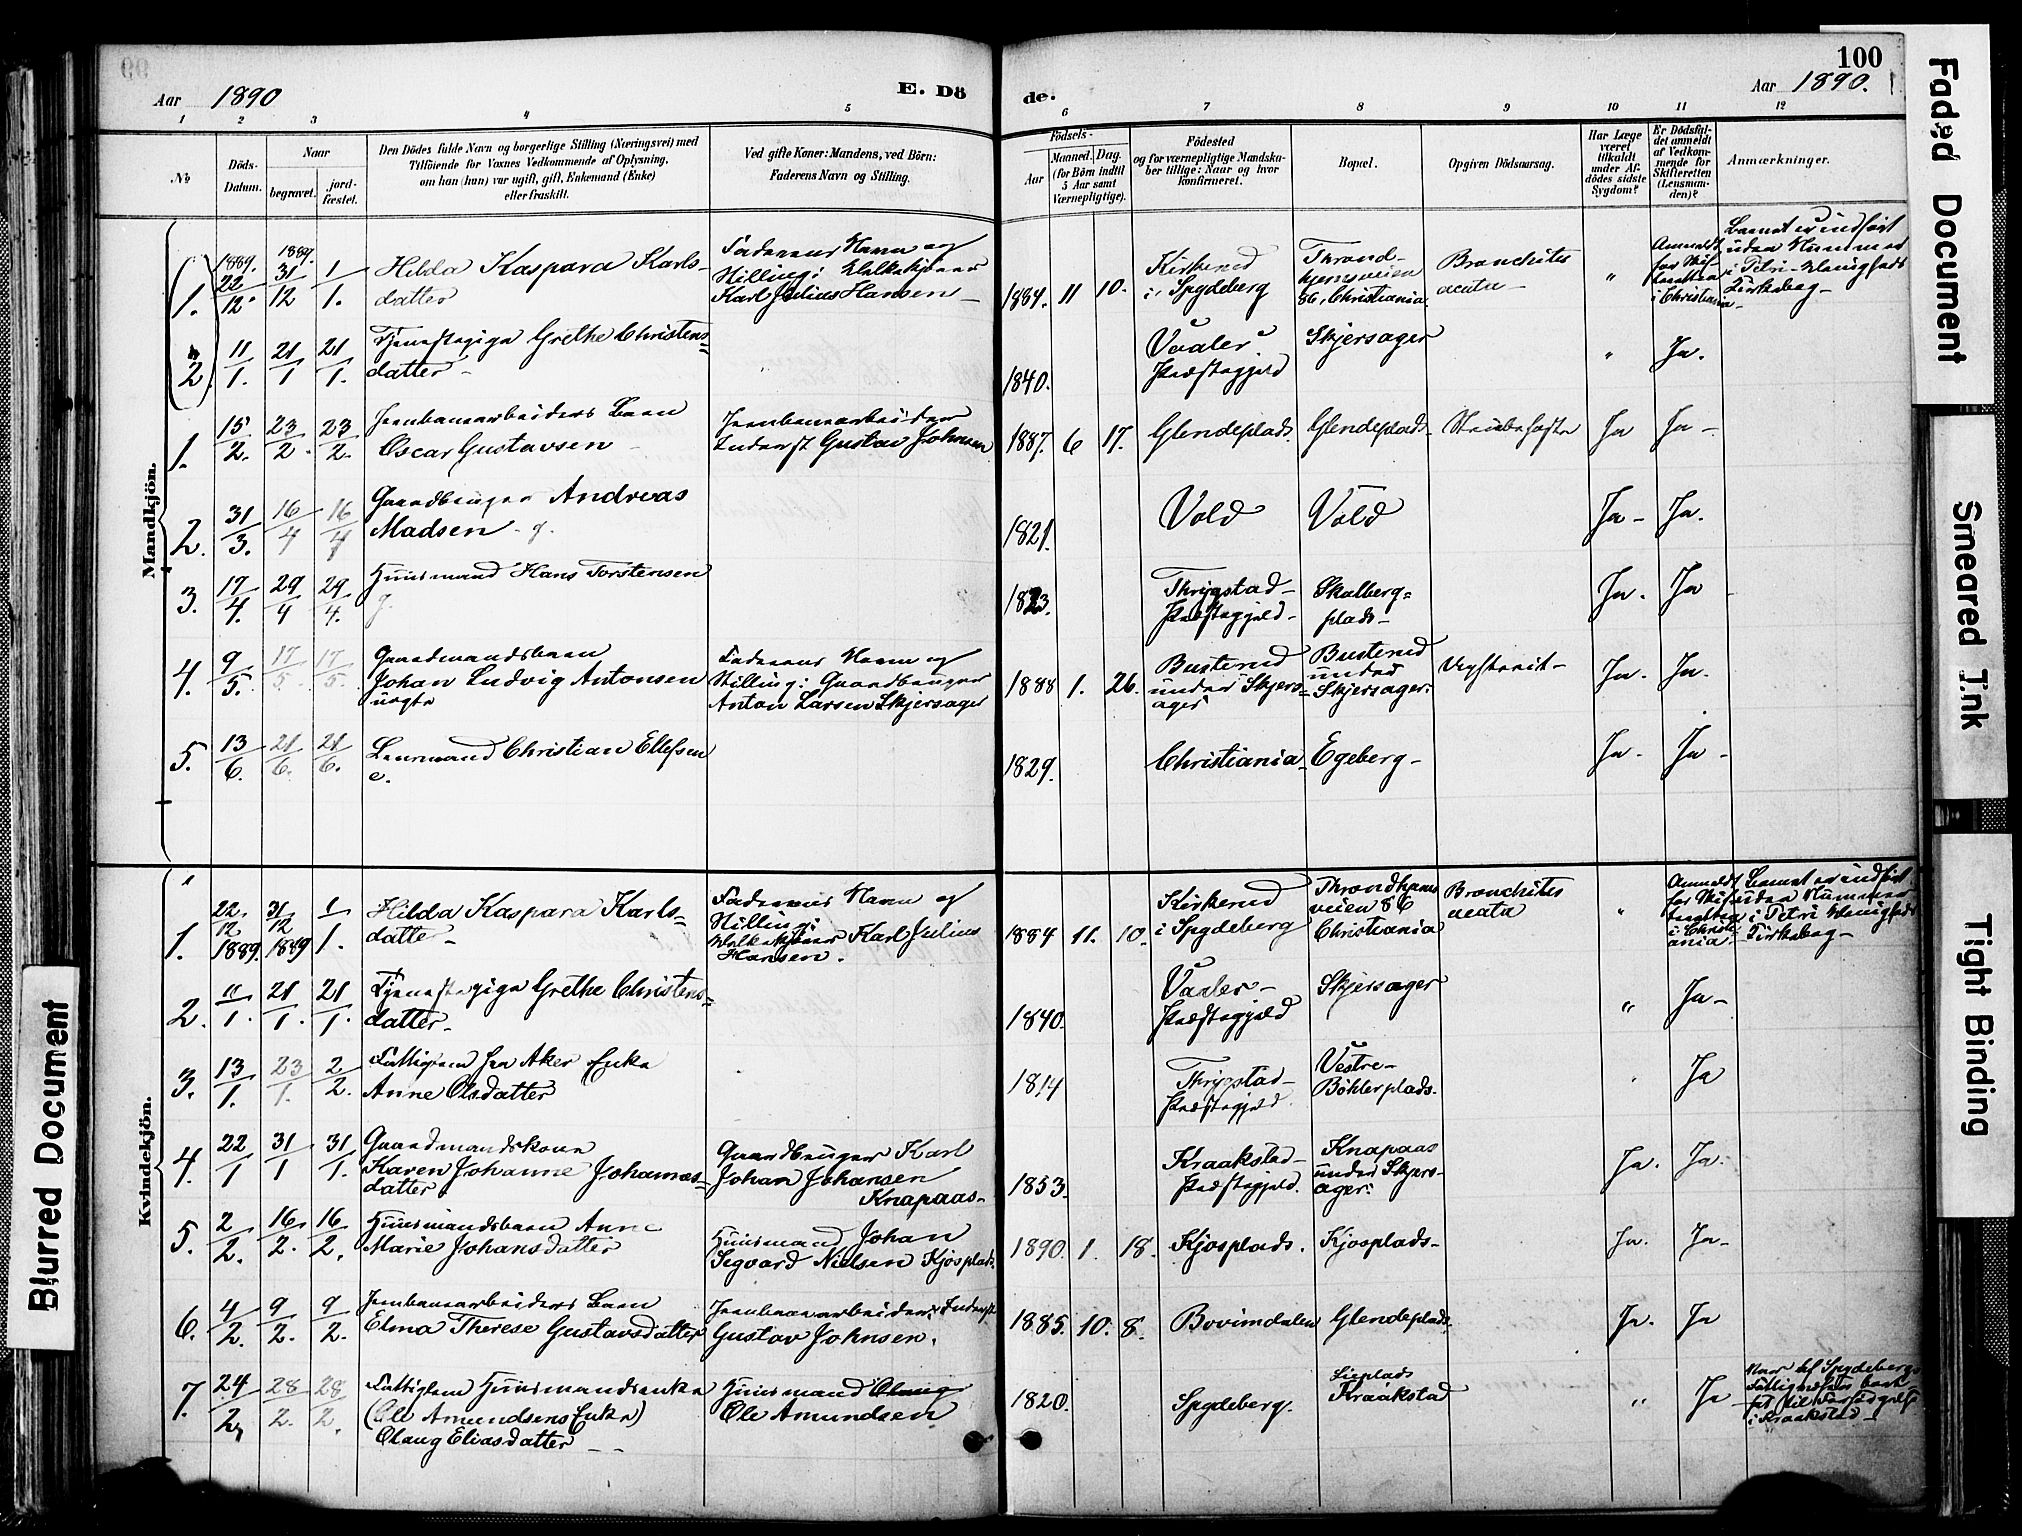 100
Aar 1890
E. Dö
de.
Aar 1890.
1 2 3 4 5 6 7 8 9 10 11 12
No
Döds-
Datum.
Naar
begravet.
jord-
fæstet.
Den Dödes fulde Navn og borgerlige Stilling (Næringsvei) med
Tilföiende for Voxnes Vedkommende af Oplysning,
om han (hun) var ugift, gift, Enkemand (Enke)
eller fraskilt.
Ved gifte Koner: Mandens, ved Börn:
Faderens Navn og Stilling.
Födsels-
Aar
Maaned.
Dag.
(for Börn indtil
5 Aar samt
Værnepligtige).
Födested
og for værnepligtige Mandska-
ber tillige: Naar og hvor
konfirmeret.
Bopæl.
Opgiven Dödsaarsag.
Har Læge
været
tilkaldt
under Af-
dödes sidste
Sygdom?
Er Dödsfal-
det anmeldt
af Vedkom-
mende for
Skifteretten
(Lensman-
den)?
Anmærkninger.
Mandkjön.
1. 1889. 22/12. 1889. 31/12 1/1.
Hilda Kaspara Karls-
datter
Faderens Navn og
Stilling:
Karl Julius Hansen
1884. 11 10.
Kirkerud
i Spydeberg
Thrond-
hjemsveien
86, Christiania
Bronchites
acuta
"
Anmeldt
for Skif-
teretten
i Christiania
Barnet er indført
uden Nummer
i Petri Menigheds
Kirkebog
2. 11/1. 21/1 21/1.
Tjenestepige Grethe Christens-
datter
1840.
Vaaler
Præstegjeld
Skjersager
"
Ja.
1. 15/2. 23/2. 23/2.
Jernbanearbeiders Barn
Oscar Gustavsen
Jernbanearbeider
Inderst Gustav Johnsen
1887. 6 17.
Glendeplads.
Glendeplads
Strubehoste
Ja
Ja
2. 31/3. 16/4 16/4
Gaardbruger Andreas
Madsen g.
1821.
Vold
Vold
Ja
Ja.
3. 17/4. 29/4 29/4.
Huusmand Hans Torstensen
g.
1823.
Thrygstad
Præstegjeld
Skulberg-
plads
Ja.
Ja
4. 9/5. 17/5. 17/5.
Gaardmandsbarn
Johan Ludvig Antonsen
uægte
Faderens Navn og
Stilling: Gaardbruger
Anton Larsen Skjersager
1888 1. 26.
Busterud
under Skjers-
ager
Busterud
under
Skjersager.
Ja.
Ja.
5. 13/6. 21/6. 21/6.
Lensmand Christian Ellefsen
e.
1829.
Christiania
Egeberg
Ja.
Ja
Kvindekjön.
1. 22/12 1889. 31/12 1889 1/1.
Hilda Kaspara Karls-
datter
Faderens Navn og
Stilling:
Karl Julius
Hansen.
1884 11. 10.
Kirkerud
i Spydeberg
Throndhjems
veien 86
Christiania
Bronchites
acuta
"
Anmeldt
for Skif-
teretten
i Christi-
ania
Barnet er indført
uden Nummer
i Petri Menigheds
Kirkebog
2. 11/1. 21/1. 21/1.
Tjenestepige Grethe Christens-
datter
1840.
Vaaler
Præstegjeld
Skjersager
"
Ja
3. 13/1. 23/1. 2/2.
Fattiglem fra Aker Enke
Anne Olsdatter
1814
Thrygstad
Præstegjeld.
Vestre
Böhlerplads.
Ja
4. 22/1 31/1 31/1.
Gaardmandskone
Karen Johanne Johannes-
datter
Gaardbruger Karl
Johan Johansen
Knapaas
1853.
Kraakstad
Præstegjeld.
Knapaas
under Skjers-
ager.
Ja.
Ja.
5. 2/2. 16/2. 16/2.
Huusmandsbarn Anne
Marie Johansdatter
Huusmand Johan
Segvard Nielsen Kjosplads.
1890 1. 18.
Kjosplads.
Kjosplads
Ja.
Ja
6. 4/2. 9/2. 9/2.
Jernbanearbeiders Barn
Elma Therese Gustavsdatter
Jernbanearbeider, Inderst
Gustav Johnsen.
1885. 10. 8.
Bovimdalen
Glendeplads
Ja.
Ja
7. 24/2. 28/2. 28/2.
Fattiglem Huusmandsenke
(Ole Amundsens Enke)
Olaug Eliasdatter
Huusmand Olaug
Ole Amundsen
1820.
Spydeberg.
Lieplads
Kraakstad
"
Ja
Var af Spydebergs
Fattigvæsen bort-
sat til Forsørgelse
i Kraakstad
Blurred Document
Faded Document
Smeared Ink
Tight Binding